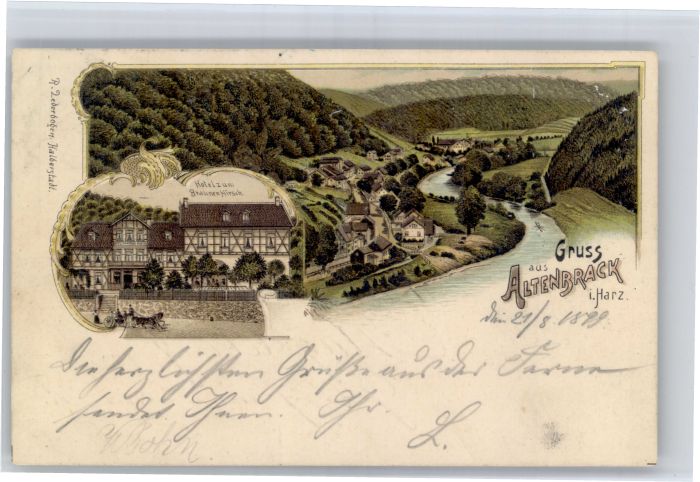 R. Lederbogen, Halberstadt.
Hotel zum
Braunen Hirsch.
Gruss
aus
ALTENBRACK
i. Harz.
den 21/8 1899
Die herzlichsten Grüße aus der Ferne
sendet Ihnen. Ihr.
L.